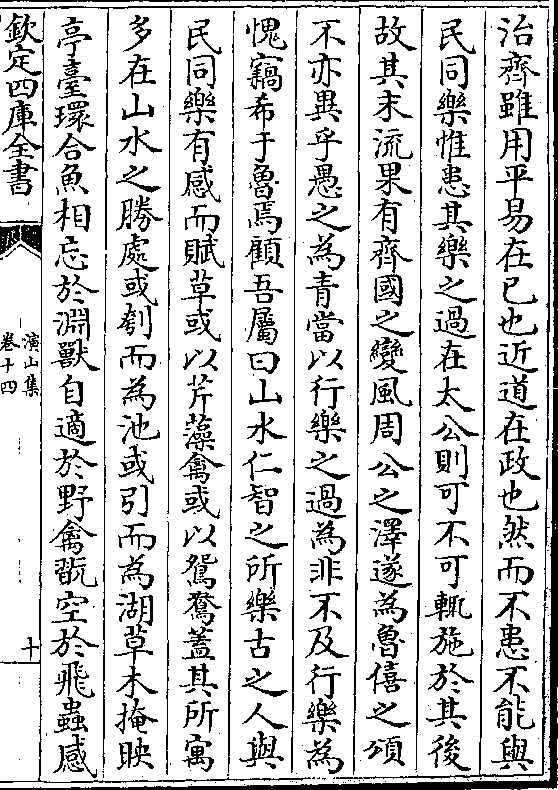 治齊雖用平易在已也近道在政也然而不患不能與
民同樂惟患其樂之過在太公則可不可輒施於其後
故其末流果有齊國之變風周公之澤遂為魯僖之頌
不亦異乎愚之為青當以行樂之過為非不及行樂為
愧竊希于魯焉顧吾屬曰山水仁智之所樂古之人與
民同樂有感而賦草或以芹藻禽或以鴛鶩蓋其所寓
多在山水之勝處或刳而為池或引而為湖草木掩映
亭臺環合魚相忘於淵獸自適於野禽翫空於飛蟲感
欽定四庫全書
演山集
卷十四
十